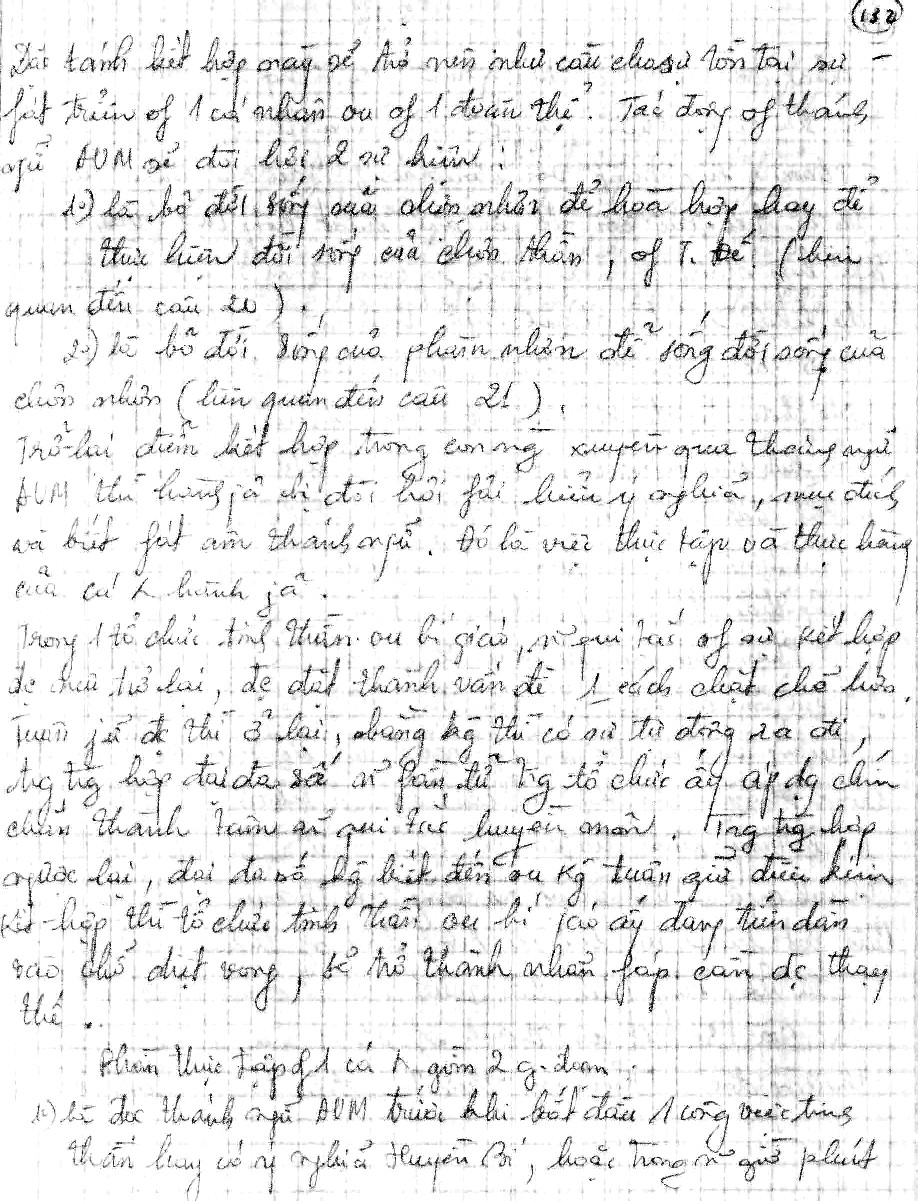 132
Đặc tánh kết hợp này sẽ trở nên như cầu cho sự tồn tại sự
fát triển of 1 cá nhân ou of 1 đoàn thể. Tác động of thánh
ngữ AUM sẽ đòi hỏi 2 sự kiện :
1o) là bỏ đời sống của chơn nhơn để hoà hợp hay để
thực hiện đời sống của chơn thần, of T. Đế (liên
quan đến câu 20).
2o) là bỏ đời sống của phàm nhơn để sống đời sống của
chơn nhơn (liên quan đến câu 21).
Trở lại điểm kết hợp trong con ng xuyên qua thánh ngữ
AUM thì hành jả bị đòi hỏi fải hiểu ý nghiã, mục đích
và biết fát âm thánh ngữ. Đó là việc thực tập và thực hành
của cá n hành jả.
Trong 1 tổ chức tinh thần ou bí giáo, n qui tắc of sự kết hợp
đc đưa trở lại, đc đặt thành vấn đề 1 cách chặt chẽ hơn.
Tuân jữ đc thì ở lại, chẳng kg thì có sự tự động ra đi,
trg tg hợp đại đa số n fần tử trg tổ chức ấy áp dg chín
chắn thành tâm n qui tắc huyền môn. Trg tg hợp
ngược lại, đại đa số kg biết đến ou kg tuân giữ điều kiện
kết hợp thì tổ chức tinh thần ou bí jáo ấy đang tiến dần
vào chổ diệt vong, sẽ trở thành nhãn fáp cần đc thay
thế..
Phần thực tập of 1 cá n gồm 2 g. đoạn :
1o) là đọc thánh ngữ AUM trước khi bắt đầu 1 công việc tinh
thần hay có ý nghiã Huyền Bí, hoặc trong n giờ phút